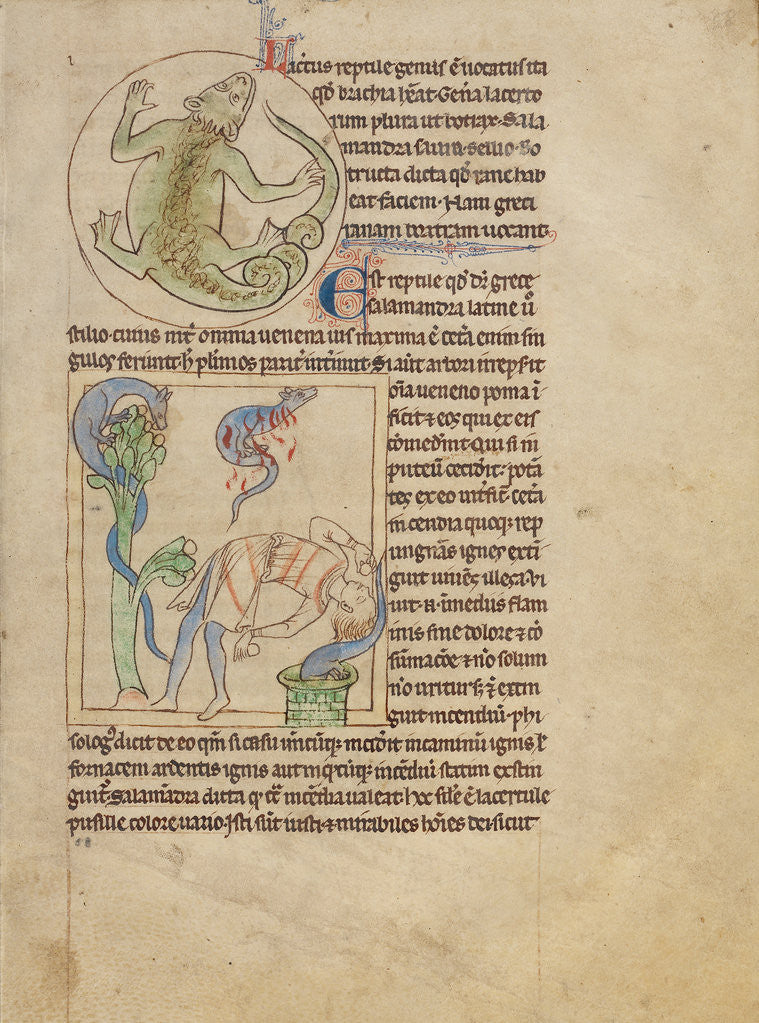 Lac̄tus reptile genus ē uocatus ita
qḋ brachia hēat. Geña lacerto
rum plura ut botrax. Sala
mandra saura. sellio. Bo
tructa dicta qḋ rane hab
eat faciem. Nam greci
ranam botram uocant.
Est reptile qḋ dr̄ grece
salamandra latine u̾o
stilio. cuius int̾ omnia uenena uis maxima ē cet̾a enim sin
gulos feriunt. h̾ plimos parit̾ int̾imit. Si aut̄ arbori irrepsit
oīa ueneno poma ī
ficit ⁊ eos qui ex eis
comed̾int. Qui si in
puteū cecid̾it. potā
tes ex eo int̾fic̄. cet̾a
incendia quoq; rep
ungnās ignes exti
guit uiuēs illesa. Vi
uit. n̄. ī mediis flam
inis sine dolore ⁊ cō
sūmacōe ⁊ nō solum
nō uritur s; ⁊ extin
guit incendiū. phi
solog̾ dicit de eo qm̄ si casu uncūq; incid̾it in caminū ignis ł
fornacem ardentis ignis aut in q̊cūq; incēdiū statim extin
guit̾. Salamādra dicta q̾ cōtͣ incēdia ualeat. hec siłe ē lacertule
pusille colore uario. Isti sūt iusti ⁊ mirabiles hoīes dei. sicut